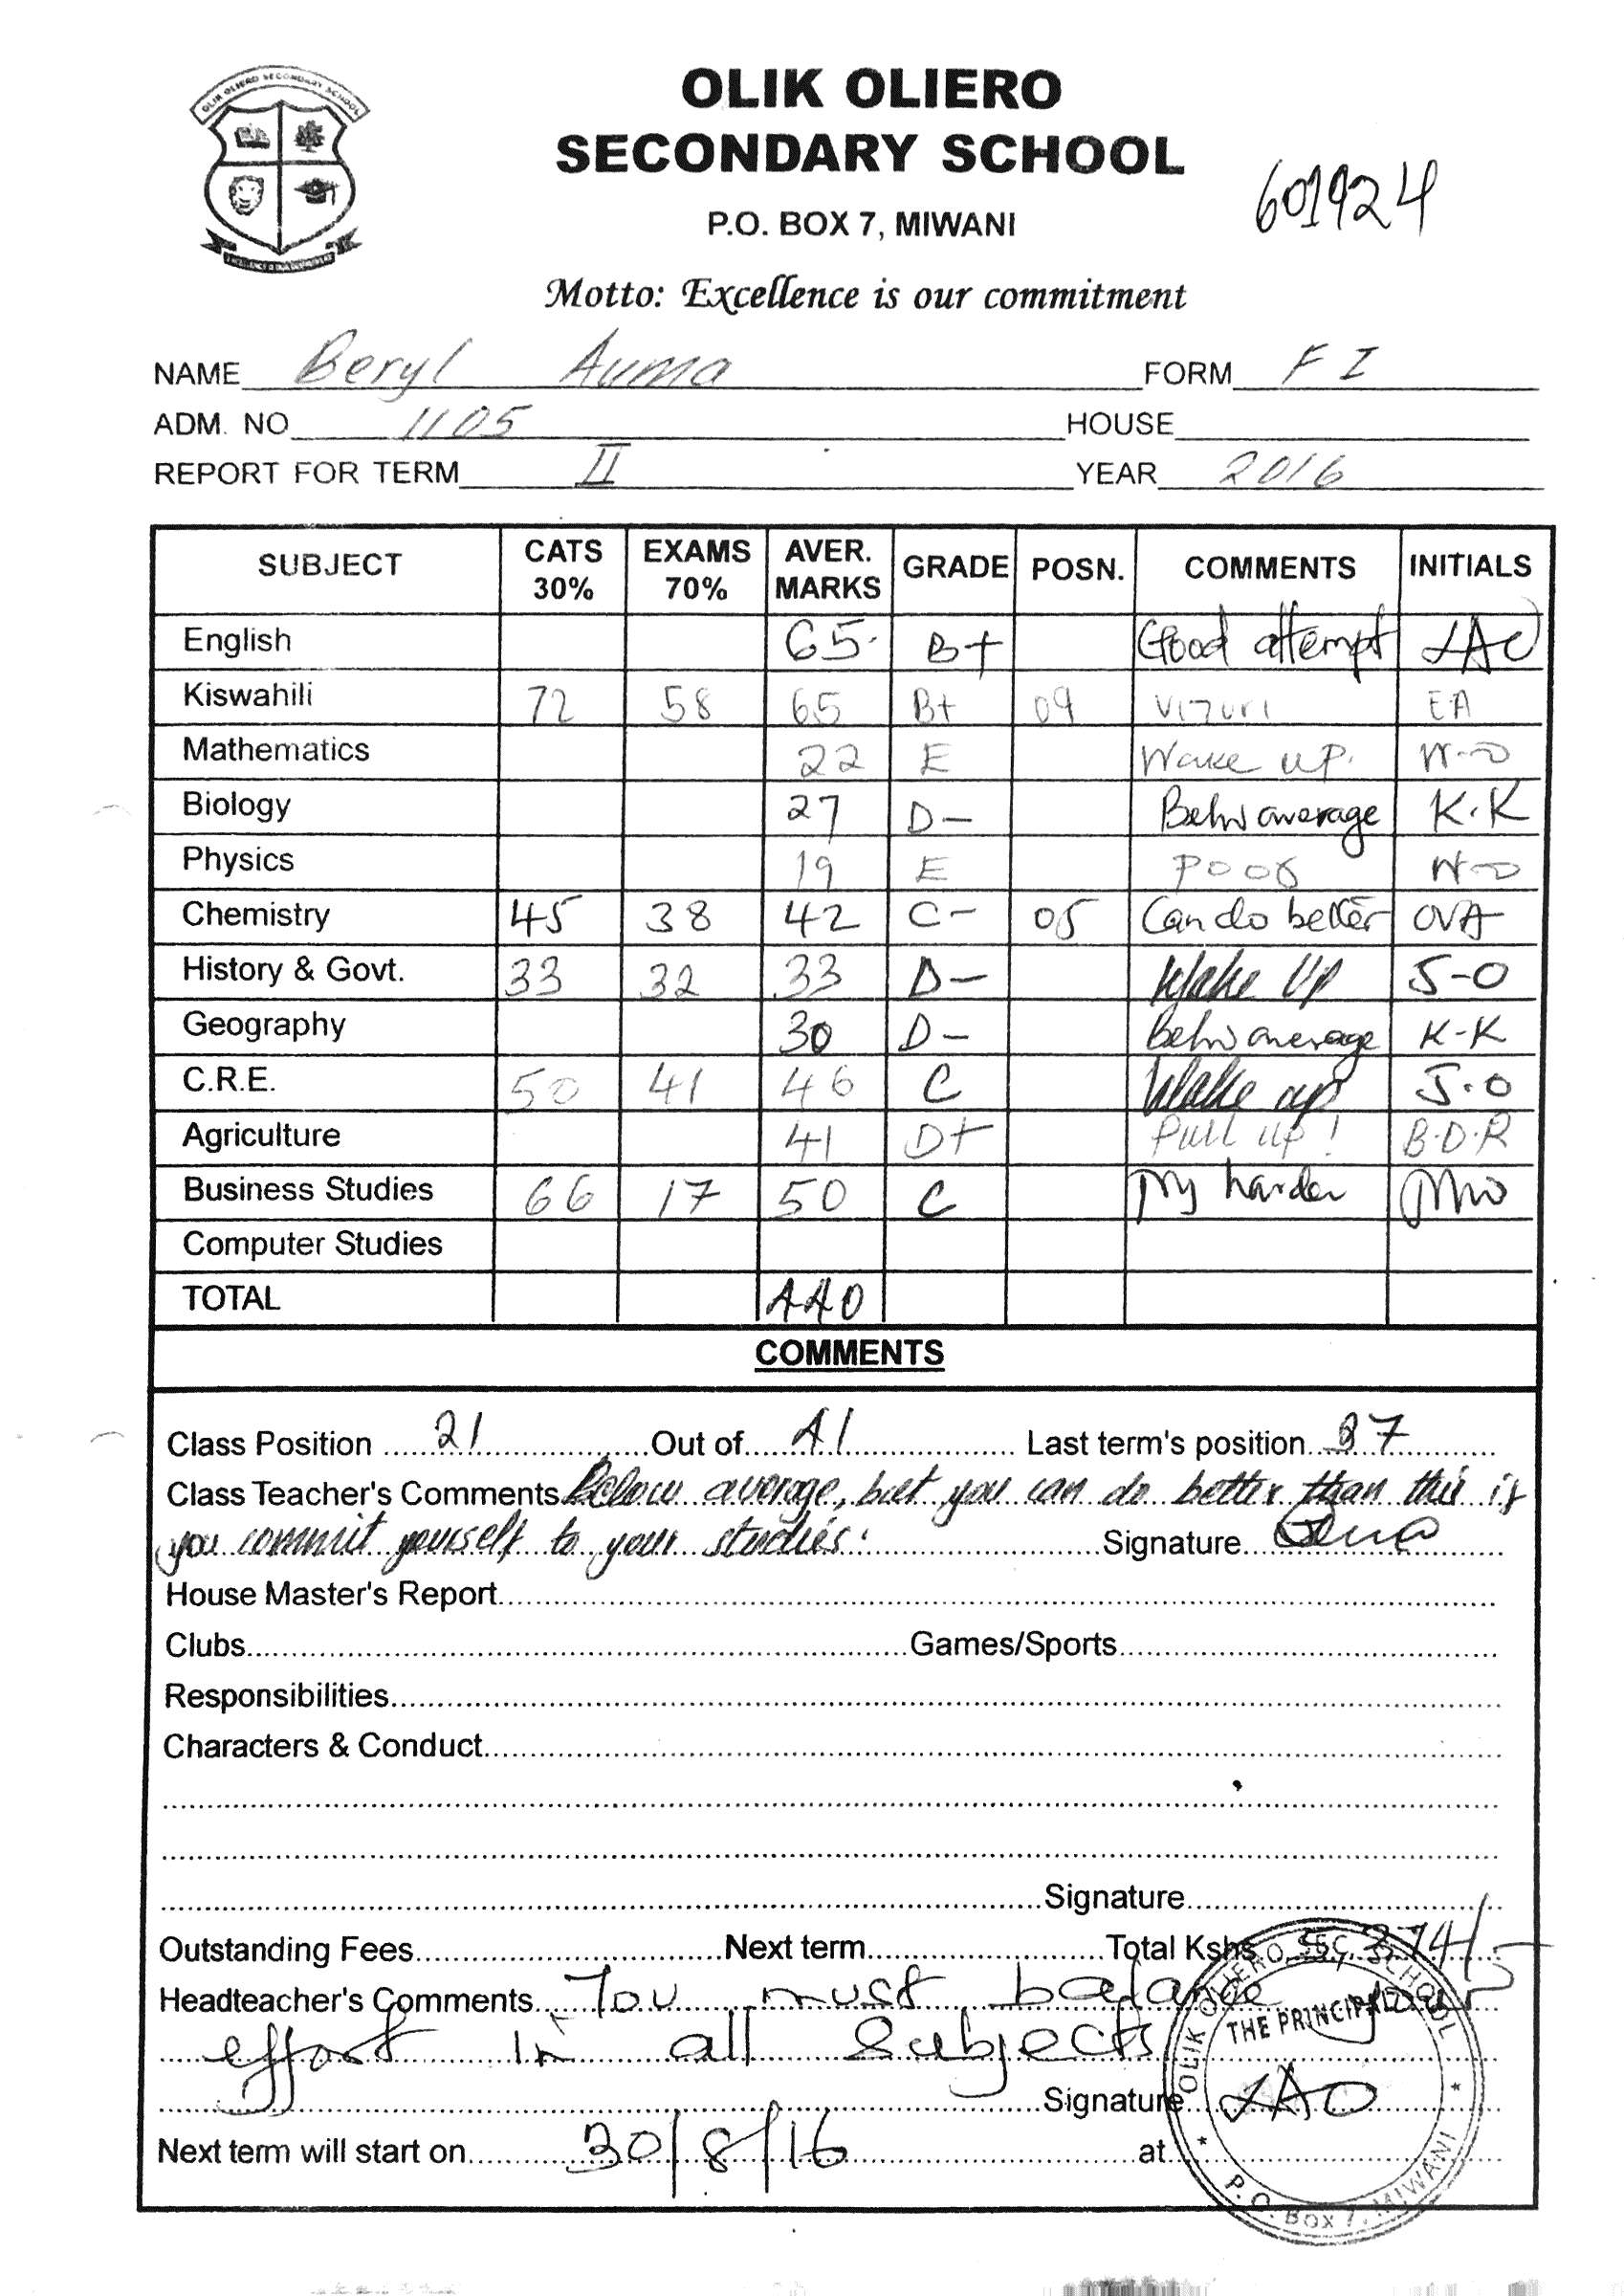 OLIK OLIERO SECONDARY SCHOOL
OLIK OLIERO
SECONDARY SCHOOL
601924
P.O. BOX 7, MIWANI
Motto: Excellence is our commitment
NAME Beryl Auma FORM F I
ADM. NO 1105 HOUSE
REPORT FOR TERM II YEAR 2016
SUBJECT CATS 30% EXAMS 70% AVER. MARKS GRADE POSN. COMMENTS INITIALS
English 65 B+ Good attempt LAO
Kiswahili 72 58 65 B+ 09 Vizuri EA
Mathematics 22 E Wake up. W-O
Biology 27 D- Below average K.K
Physics 19 E Poor W-O
Chemistry 45 38 42 C- 05 Can do better OVA
History & Govt. 33 32 33 D- Wake Up J-O
Geography 30 D- Below average K-K
C.R.E. 50 41 46 C Wake up J.O
Agriculture 41 D+ Pull up! B.D.R
Business Studies 66 17 50 C Try harder
Computer Studies
TOTAL 440
COMMENTS
Class Position 21 Out of 41 Last term's position 37
Class Teacher's Comments Below average, but you can do better than this if
you commit yourself to your studies. Signature
House Master's Report
Clubs Games/Sports
Responsibilities
Characters & Conduct
Signature
Outstanding Fees Next term Total Kshs 5,874/=
Headteacher's Comments You must balance your
effort in all subjects
Signature LAO
Next term will start on 30/8/16 at
OLIK OLIERO SEC. SCHOOL
THE PRINCIPAL
P.O. Box 7, MIWANI